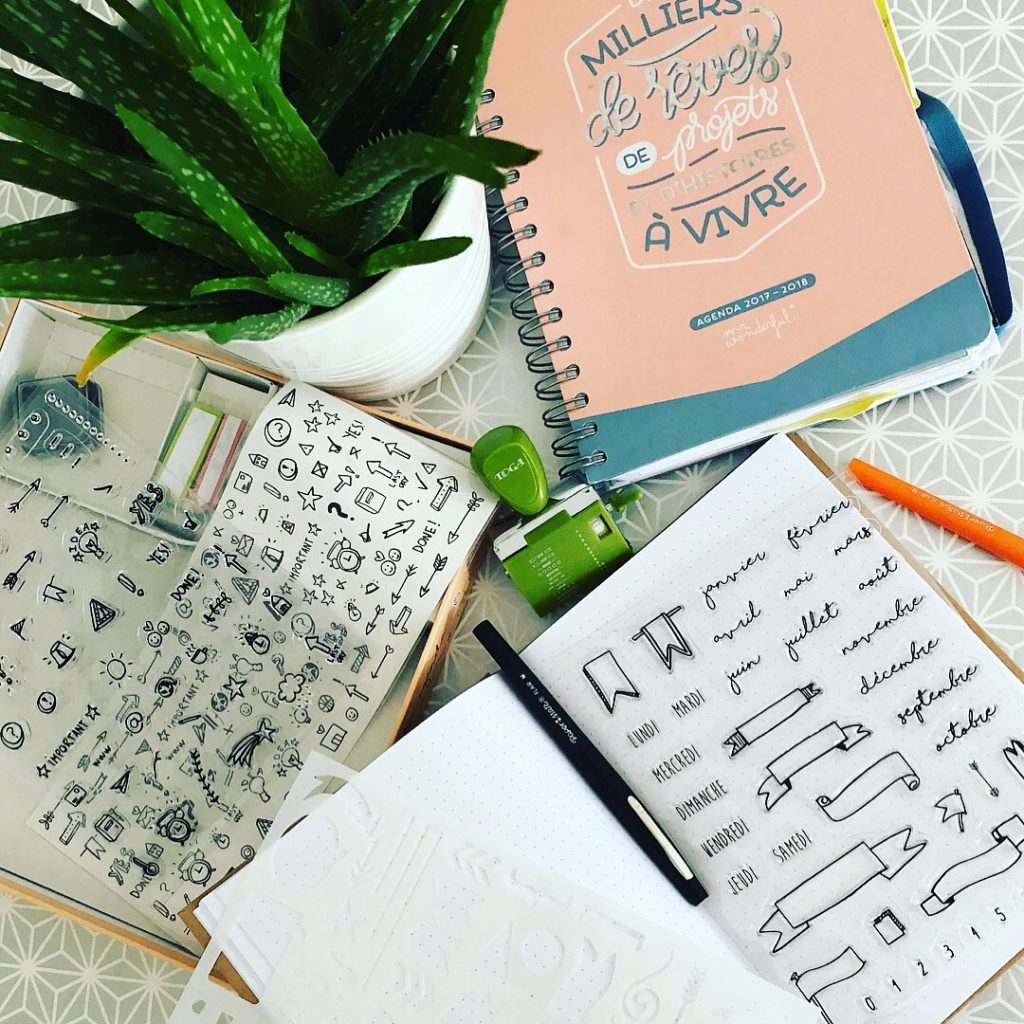 MILLIERS
de rêves,
DE projets
ET D'HISTOIRES
À VIVRE
AGENDA 2017-2018
mr. wonderful
TOGA
YES!
LAST DAY
DONE!
IMPORTANT
?
YES
IDEA
YES!
DONE!
@
IMPORTANT
www
IMPORTANT
www
YES
DONE
janvier
février
mars
avril
mai
août
juin
juillet
novembre
décembre
septembre
octobre
LUNDI
MARDI
MERCREDI
DIMANCHE
VENDREDI
SAMEDI
JEUDI
0 1 2 3 4 5